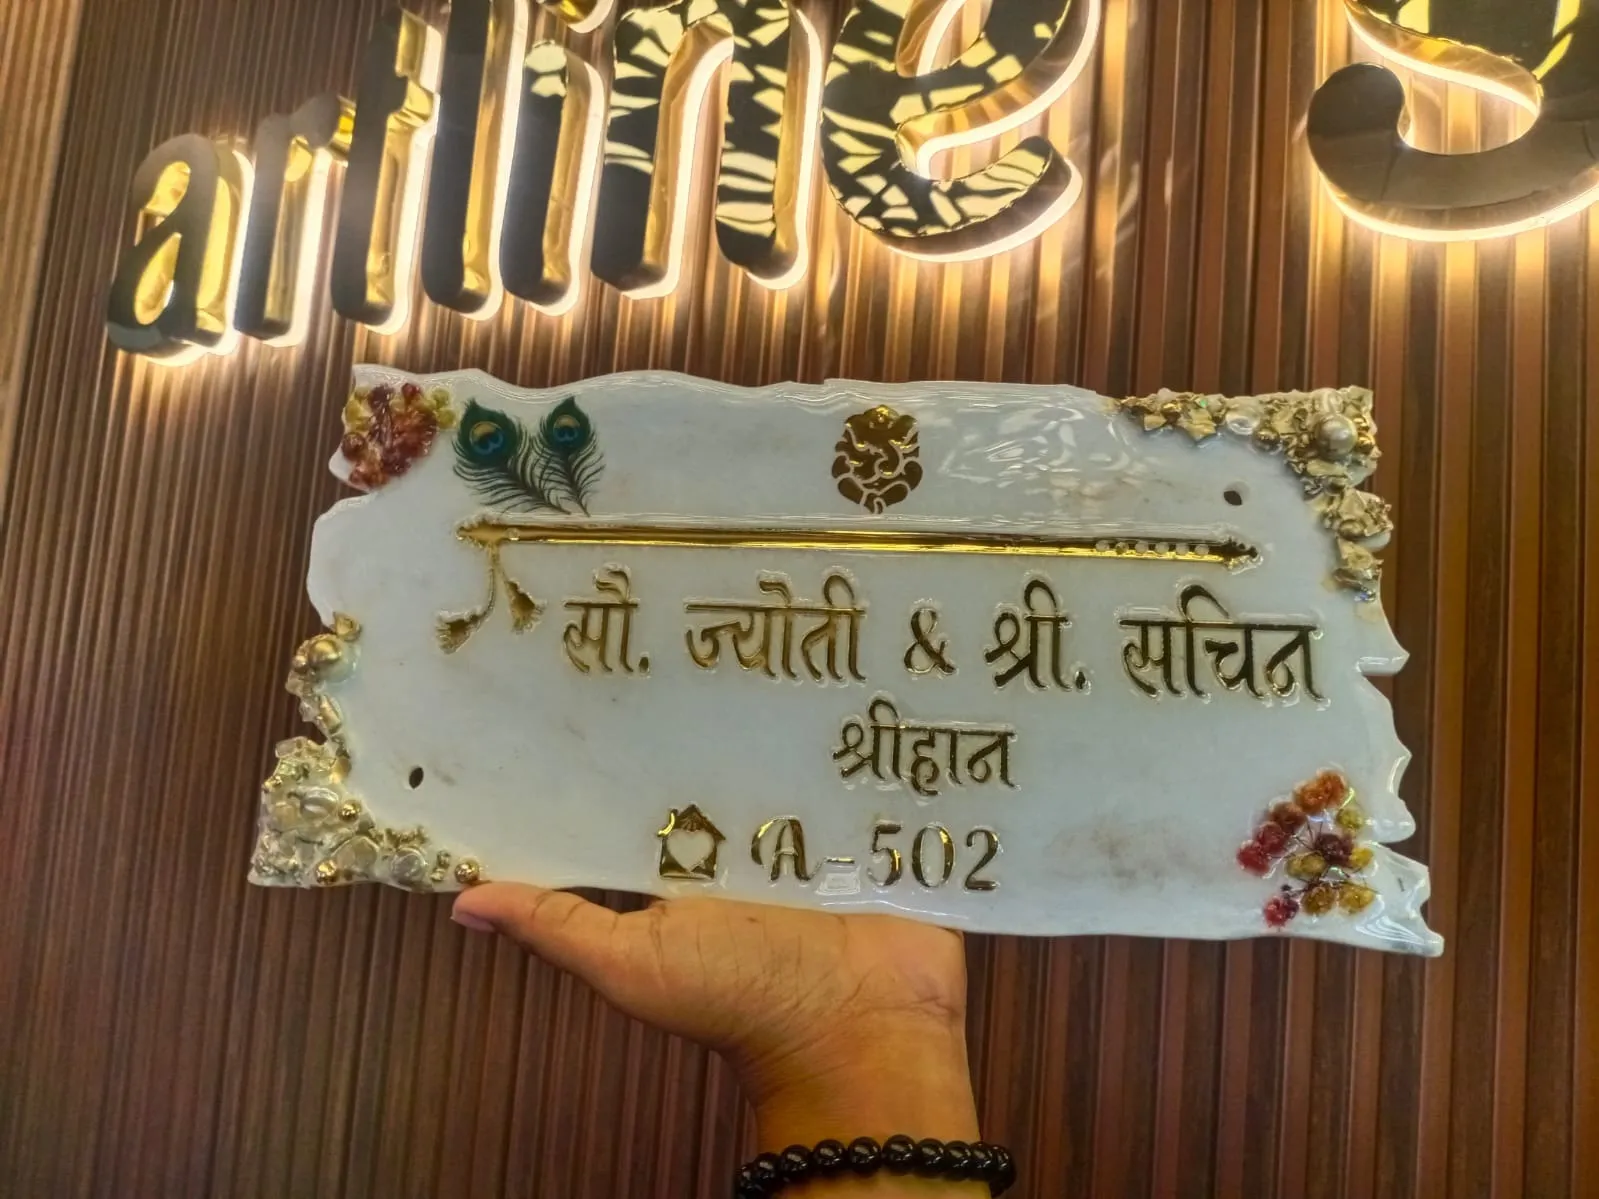 artline g
सौ. ज्योती & श्री. सचिन
श्रीहान
A-502